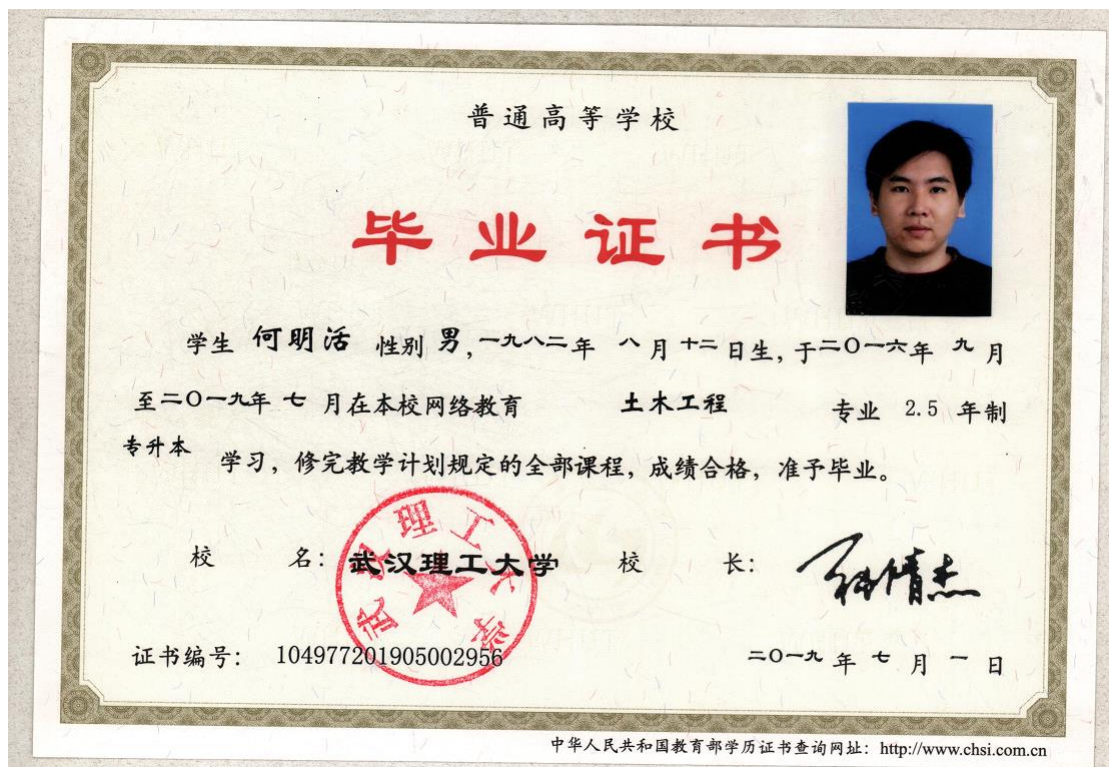 普通高等学校
毕业证书
学生 何明活 性别 男，一九八二年 八 月 十二 日生，于二〇一六年 九 月
至二〇一九年 七 月在本校网络教育 土木工程 专业 2.5 年制
专升本 学习，修完教学计划规定的全部课程，成绩合格，准予毕业。
校 名：武汉理工大学 校 长：
武汉理工大学
证书编号：104977201905002956 二〇一九 年 七 月 一 日
中华人民共和国教育部学历证书查询网址：http://www.chsi.com.cn